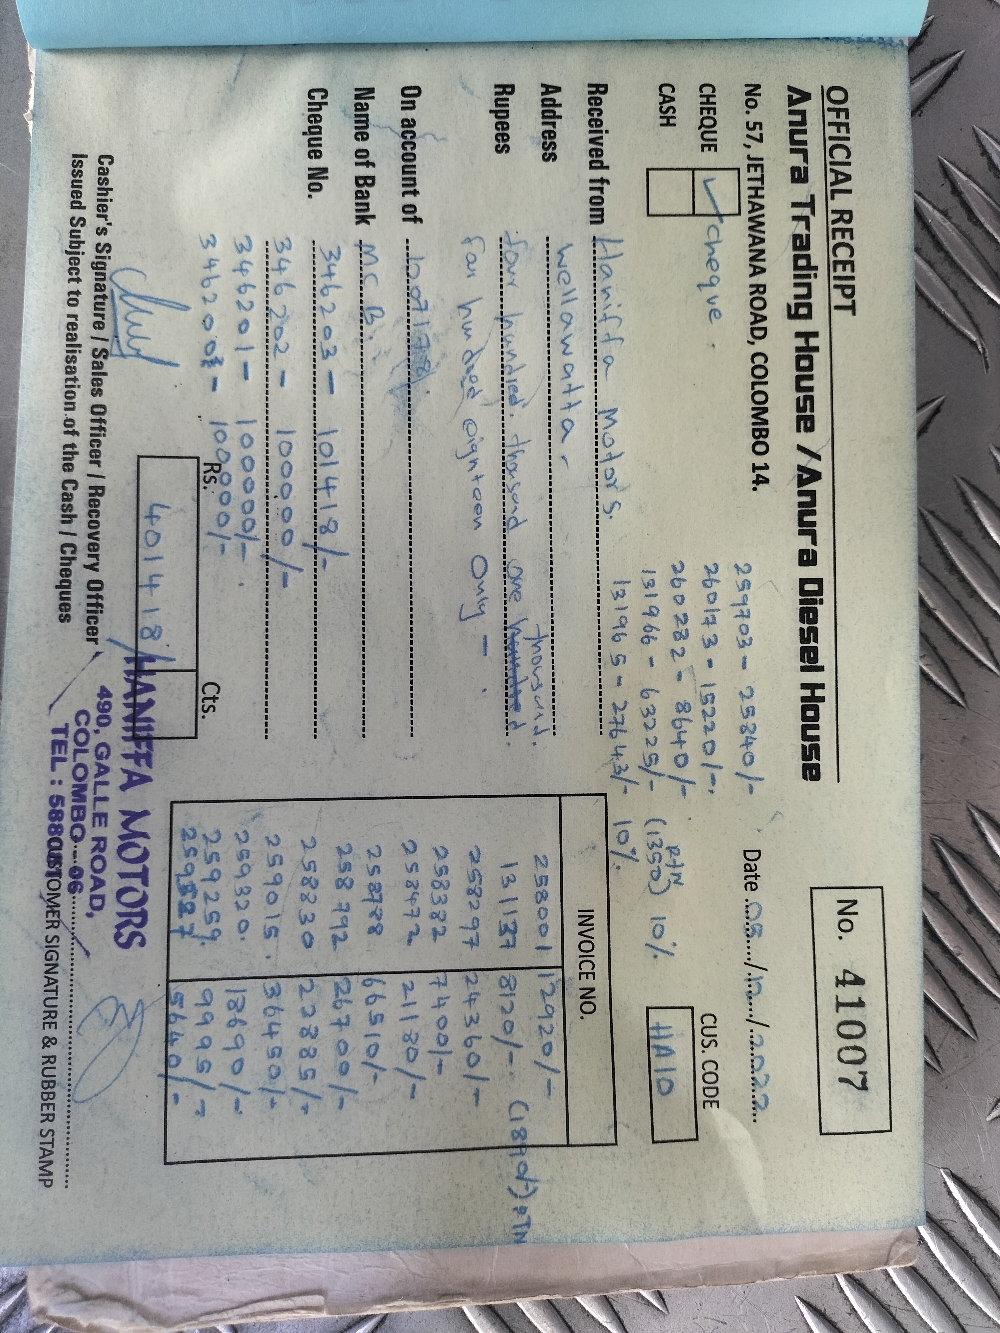 OFFICIAL RECEIPT
Anura Trading House / Anura Diesel House
No. 57, JETHAWANA ROAD, COLOMBO 14.
No. 41007
Date 05/12/2022
CHEQUE ✓ cheque.
CASH
CUS. CODE
HA10
259703 - 25840/-
260173 - 15220/-
260282 - 8640/-
131966 - 63225/- (1350) RTN 10%
13196 5 - 27643/- 10%
Received from Haniffa Motors.
Address Wellawatta
Rupees four hundred thousand one thousand.
four hundred eighteen only -
On account of
Name of Bank MCB.
Cheque No. 346203 - 101418/-
346202 - 100000/-
346201 - 100000/-
346200 - 100000/-
Rs. Cts.
401418/
INVOICE NO.
258001 12920/-
131137 8120/- (1890/-) RTN
258297 24360/-
258382 7400/-
258472 21180/-
258788 66510/-
258792 26700/-
258830 23885/-
259015 36450/-
259320 18690/-
259259 9995/-
259587 5640/-
Cashier's Signature / Sales Officer / Recovery Officer
Issued Subject to realisation of the Cash / Cheques
HANIFFA MOTORS
490, GALLE ROAD,
COLOMBO - 06
TEL : 5880
CUSTOMER SIGNATURE & RUBBER STAMP